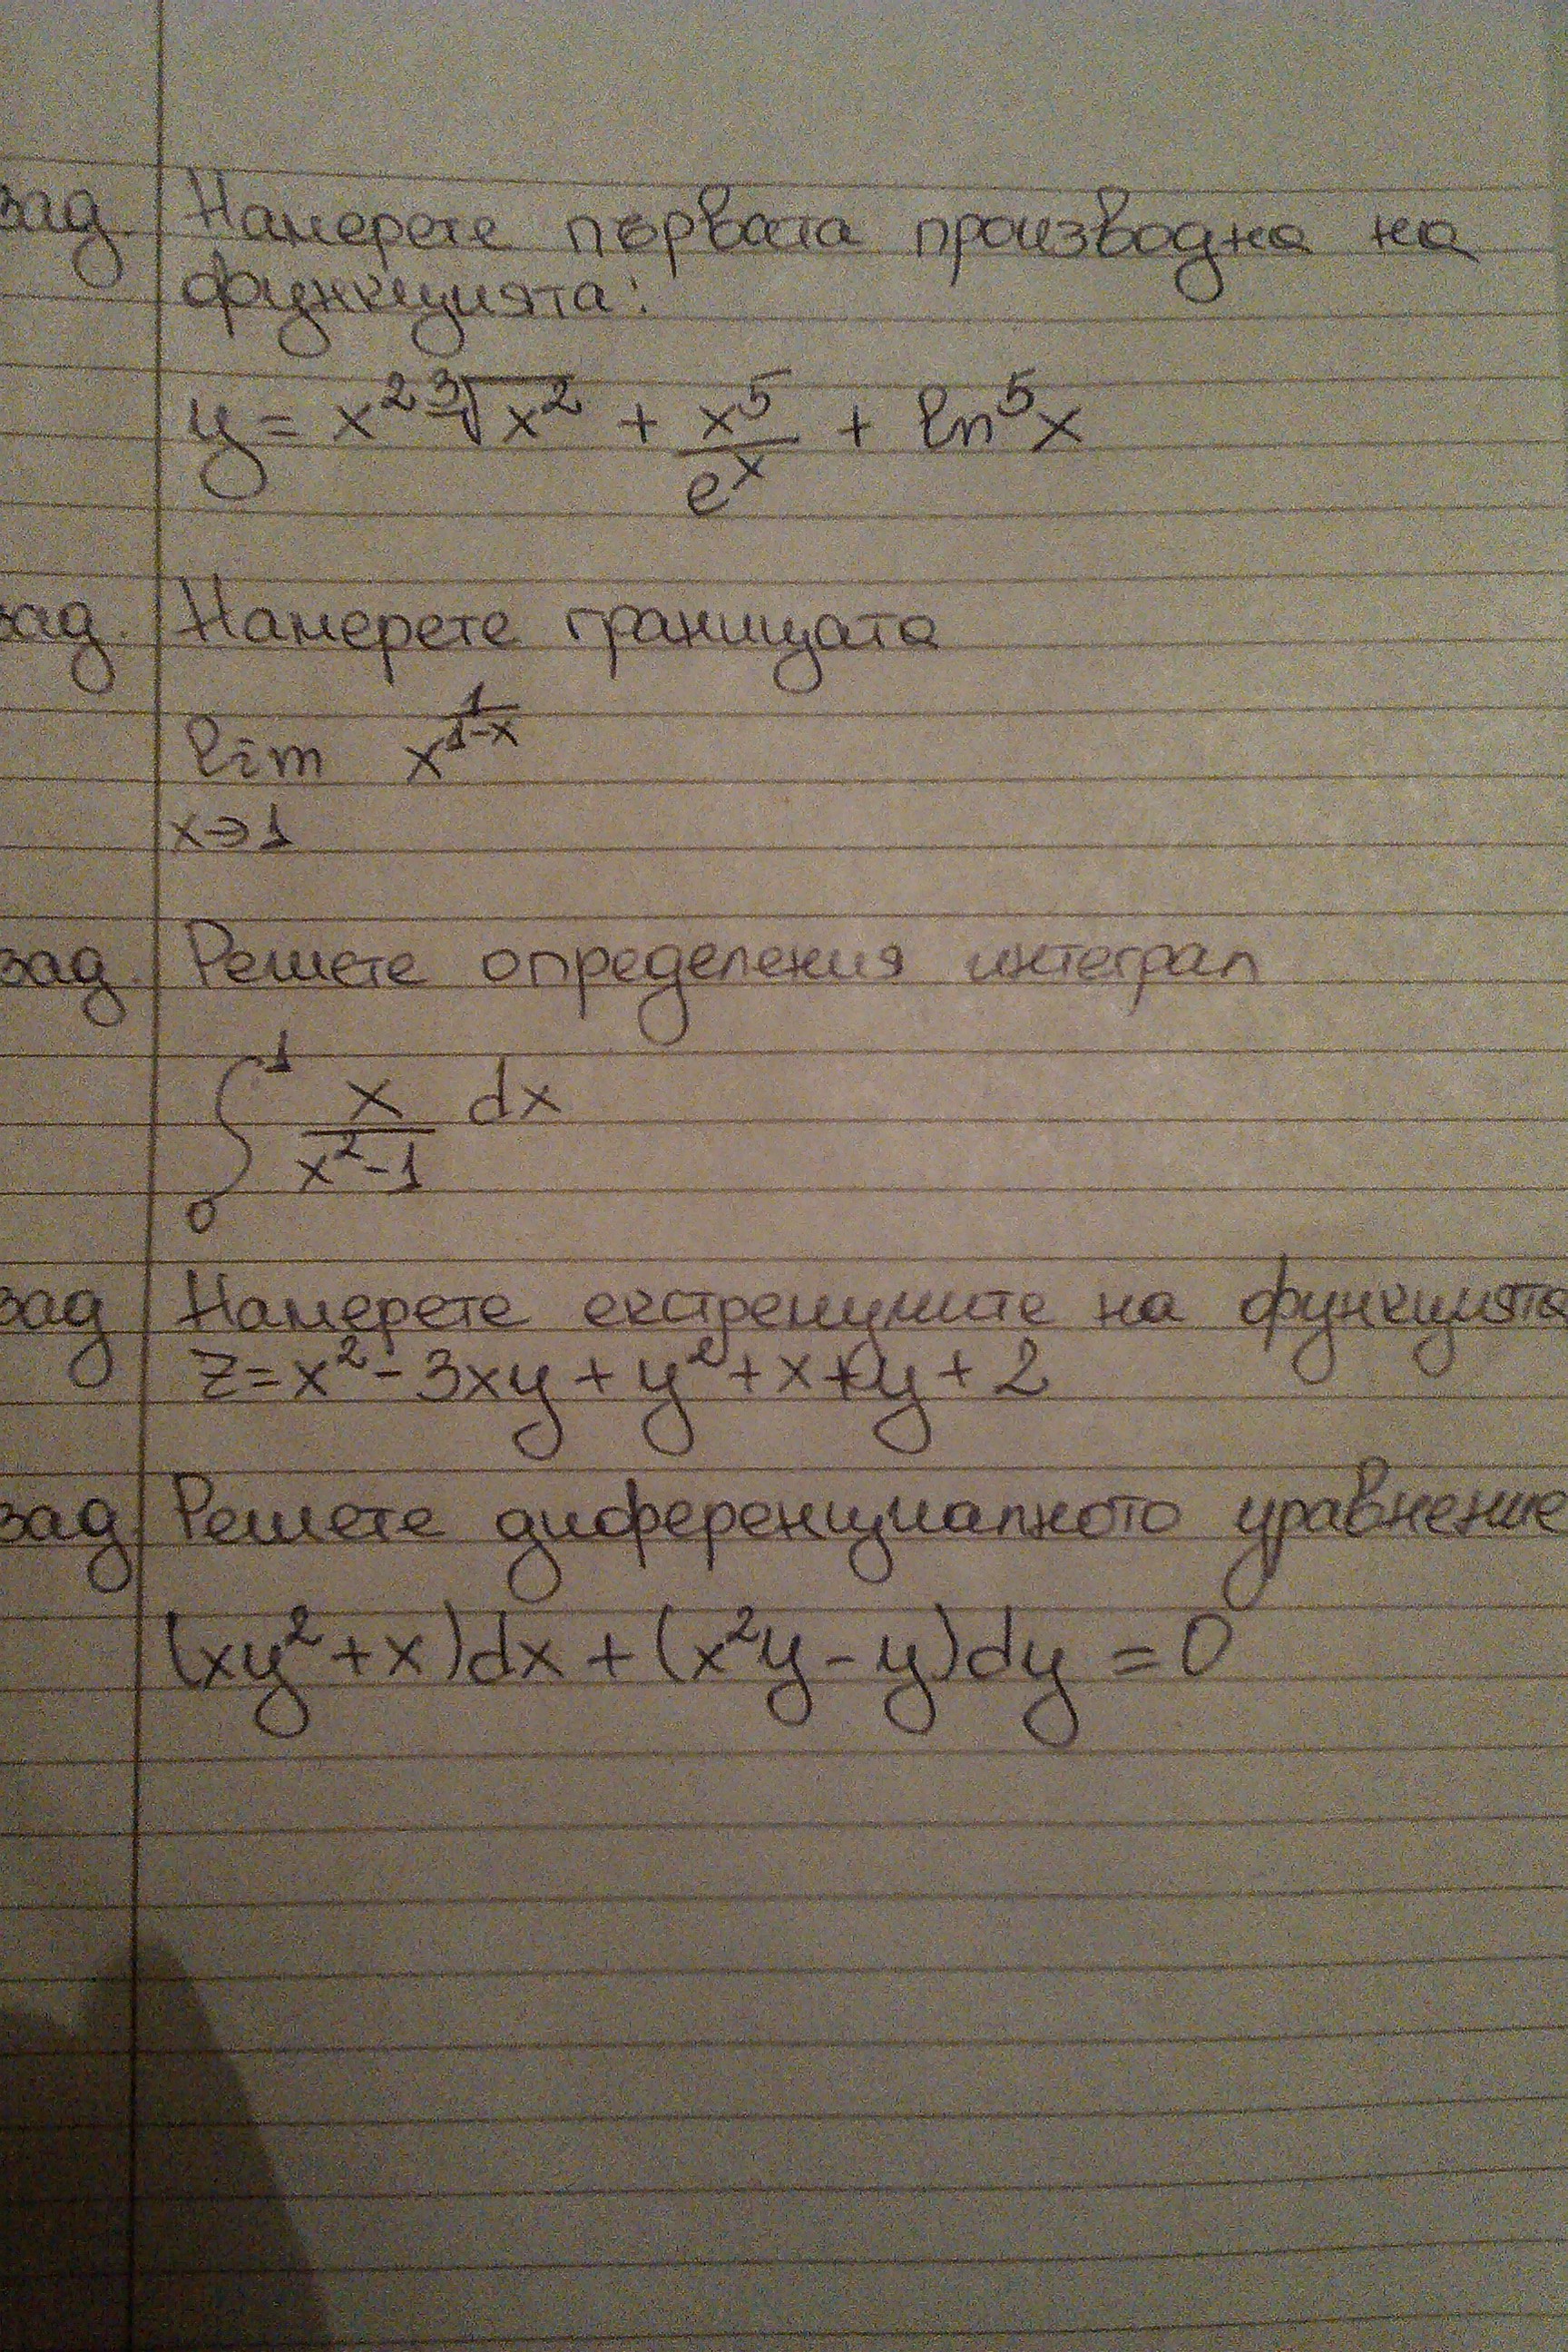 зад. Намерете първата производна на
функцията:
y = x² ∛x² + x⁵/eˣ + ln⁵x
зад. Намерете границата
lim x^(1/(1-x))
x→1
зад. Решете определения интеграл
∫₀¹ x/(x²-1) dx
зад Намерете екстремумите на функцията
z=x²-3xy+y²+x+y+2
зад. Решете диференциалното уравнение
(xy²+x)dx+(x²y-y)dy=0